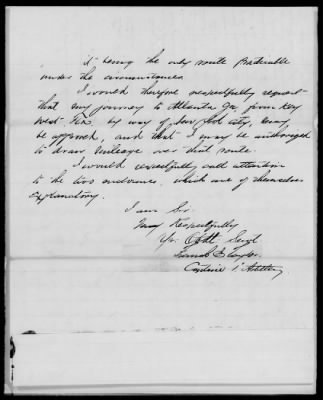 it being the only route Practicable
under the circumstances.
I would therefore respectfully request
that my journey to Atlanta Ga, from Key
West Fla. by way of New York City, may
be approved, and that I may be authorized
to draw Mileage over that route.
I would respectfully call attention
to the two endorsements, which are of themselves
explanatory.
I am Sir
Very Respectfully
Yr. Obdt. Servt
Taylor
1st Artillery